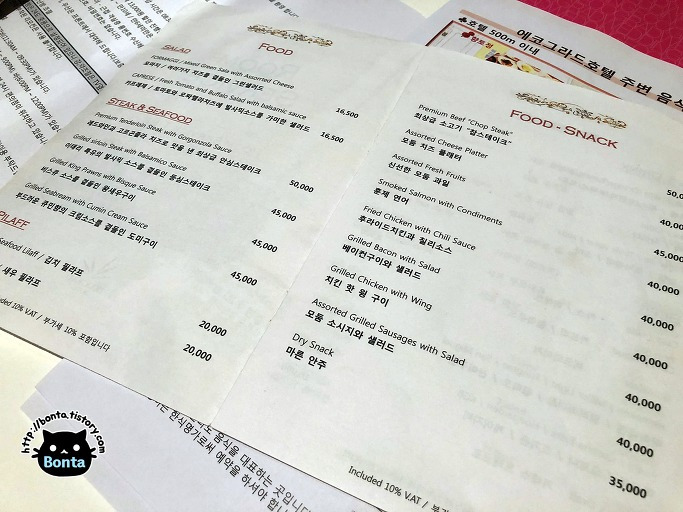 FOOD
SALAD
FORMAGGI / Mixed Green Sala with Assorted Cheese
16,500
CAPRESE / Fresh Tomato and Buffalo Salad with balsamic sauce
카프레제 / 토마토와 모짜렐라치즈에 발사믹소스를 가미한 샐러드
16,500
STEAK & SEAFOOD
Premium Tenderloin Steak with Gorgonzola Sauce
레드와인과 고르곤졸라 치즈로 맛을 낸 최상급 안심스테이크
50,000
Grilled sirloin Steak with Balsamico Sauce
이태리 특유의 발사믹 소스를 곁들인 등심스테이크
45,000
Grilled King Prawns with Bisque Sauce
비스트 소스를 곁들인 왕새우구이
45,000
Grilled Seabream with Cumin Cream Sauce
부드러운 큐민향의 크림소스를 곁들인 도미구이
45,000
PILAFF
Seafood Lilaff / 김치 필라프
20,000
/ 새우 필라프
20,000
Included 10% V.A.T / 부가세 10% 포함입니다
FOOD - SNACK
Premium Beef "Chop Steak"
최상급 소고기 "찹스테이크"
50,0
Assorted Cheese Platter
모듬 치즈 플래터
40,00
Assorted Fresh Fruits
신선한 모듬 과일
45,000
Smoked Salmon with Condiments
훈제 연어
40,000
Fried Chicken with Chili Sauce
후라이드치킨과 칠리소스
40,000
Grilled Bacon with Salad
베이컨구이와 샐러드
40,000
Grilled Chicken with Wing
치킨 핫 윙 구이
40,000
Assorted Grilled Sausages with Salad
모듬 소시지와 샐러드
40,000
Dry Snack
마른 안주
35,000
Included 10% V.A.T / 부가
에코그라드호텔 주변 음식
호텔 500m 이내
음식을 대표하는 곳입니다
한식명가로써 예약을 하셔야 합니
http://bonta.tistory.com
Bonta